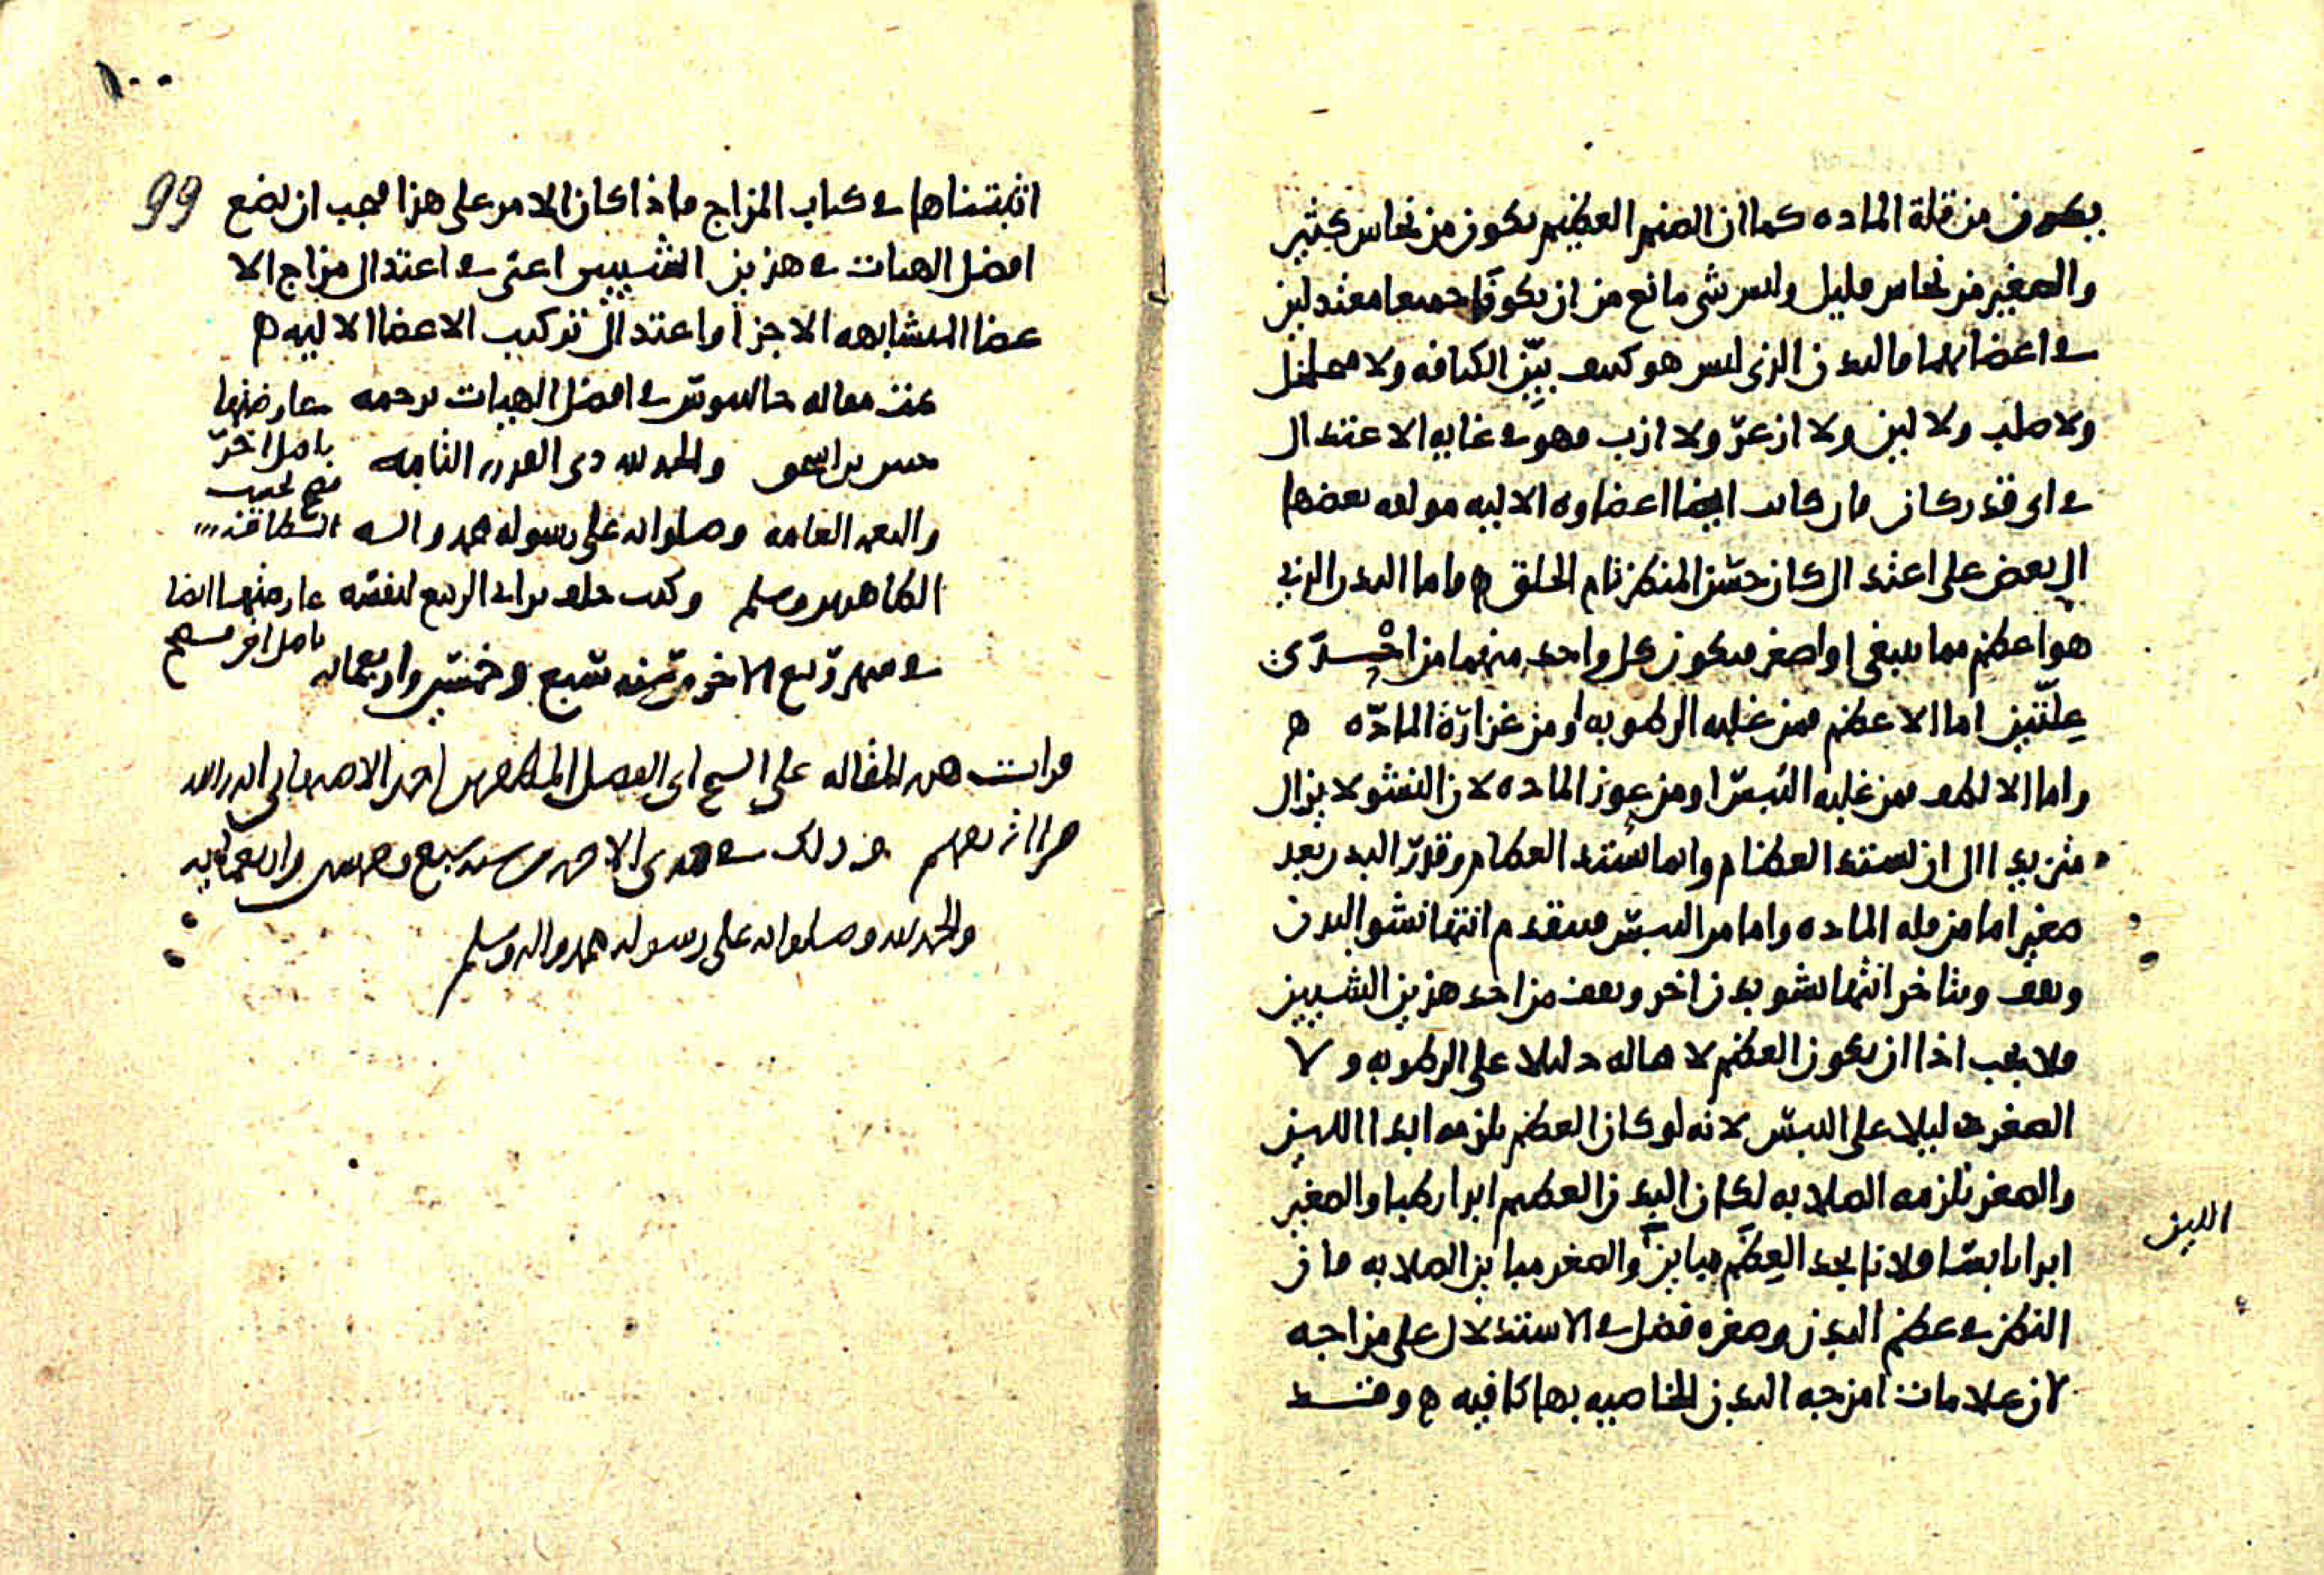 يكون من قلة المادة كما ان الصنم العظيم يكون من نحاس كثير
والصغير من نحاس قليل وليس شي مانع من ان يكونا جميعا معتدلين
في اعضايهما فالبدن الذي ليس هو كيف بيّن الكثافه ولا متخلخل
ولا صلب ولا لين ولا ازعرّ ولا ازب فهو في غايه الاعتدال
في اي قدر كان فان كانت ايضا اعضاوه الاليه موافقه بعضها
الى بعض على اعتدال كان حسن المنظر تام الخلق ه واما البدن الذي
هو اعظم مما ينبغي او اصغر فيكون كل واحد منهما من احدى
علّتين اما الاعظم فمن غلبه الرطوبه او من غزارة المادّه ه
واما الالطف فمن غلبه اليبس او من عوز المادة لان النشو لا يزال
متزيدا الى ان تشتد العظام وانما تشتد العظام وقدر البدن بعد
صغير اما من قله المادة واما من اليبس فيتقدم انتها نشو البدن
ويقف ويتاخر انتها نشو بدن اخر ويقف من احد هذين الشيين
فلا يجب اذا ان يكون العظم لا محاله دليلا على الرطوبه ولا
الصغر دليلا على اليبس لانه لو كان العظم يلزمه ابدا اللين
والصغر تلزمه الصلابه لكان البدن العظيم ابدا رطبا والصغير
ابدا يابسا ولانا نجد العظم مباين والصغر مباين الصلابه فان
اللين
النظر في عظم البدن وصغره فضل في الاستدلال على مزاجه
لان علامات امزجه البدن الخاصيه بها كافيه ه وقد
١٠٠
99
اثبتناها في كتاب المزاج واذا كان الامر على هذا فيجب ان نضع
افضل الهيات في هذين الشيين اعني في اعتدال مزاج الا
عضا المتشابهه الاجزا واعتدال تركيب الاعضا الاليه ه
تمت مقاله جالينوس في افضل الهيات ترجمه
حنين بن اسحق والحمد لله ذي القدره التامه
والنعمه العامه وصلواته على رسوله محمد واله
الطاهرين وسلم وكتب خلف بن ابي الربيع لنفسه
في شهر ربيع الاخر من سنه تسع وخمسين واربعمايه
عارضتها
باصل اخر
صح بحسب
الطاقه
عارضتها ايضا
باصل اخر صحيح
قرات هذه المقاله على الشيخ ابي الفضل احمد
قراة تفهم وذلك في جمدى الاخره من سنه سبع واربعمايه
والحمد لله وصلواته على رسوله محمد واله وسلم